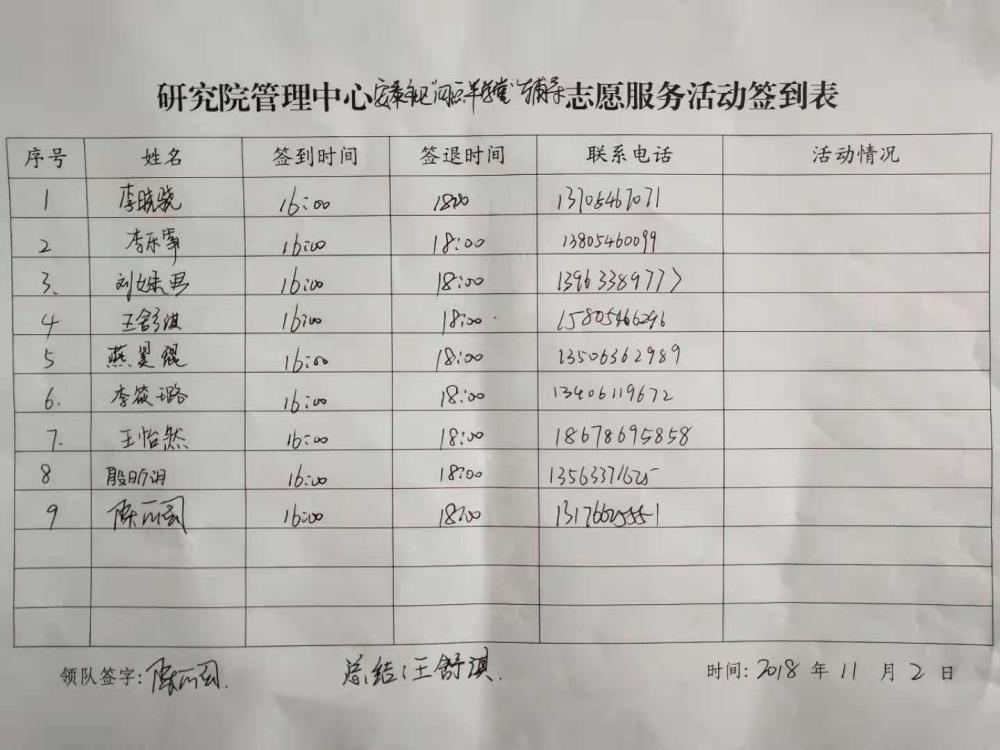 研究院管理中心安泰社区"四点半学堂"辅导志愿服务活动签到表
序号 姓名 签到时间 签退时间 联系电话 活动情况
1 李晓骁 16:00 18:00 13705467071
2 李乐 16:00 18:00 13805460099
3. 刘 16:00 18:00 13963389777
4 王舒淇 16:00 18:00 15805466296
5 燕昊琨 16:00 18:00 13506362989
6. 李筱璐 16:00 18:00 13406119672
7. 王怡然 16:00 18:00 18678695858
8 殷昕 16:00 18:00 13563371625
9 16:00 18:00 13176625551
领队签字: 总结:王舒淇 时间:2018年11月2日